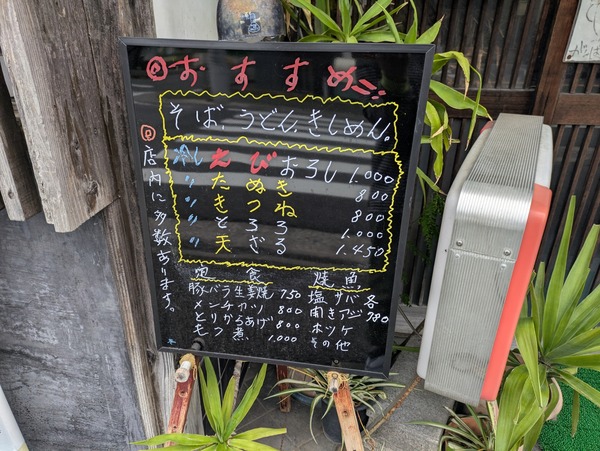 ◎おすすめ
そば、うどん、きしめん。
冷しえびおろし 1.000
〃 たぬき 800
〃 きつね 800
〃 とろろ 1.000
〃 天ざる 1.450
◎店内に多数あります。
定食
豚バラ生姜焼 750
メンチカツ 800
とりからあげ 800
もつ煮、 1.000
焼魚
塩サバ 各
開きアジ 780
ホッケ
その他